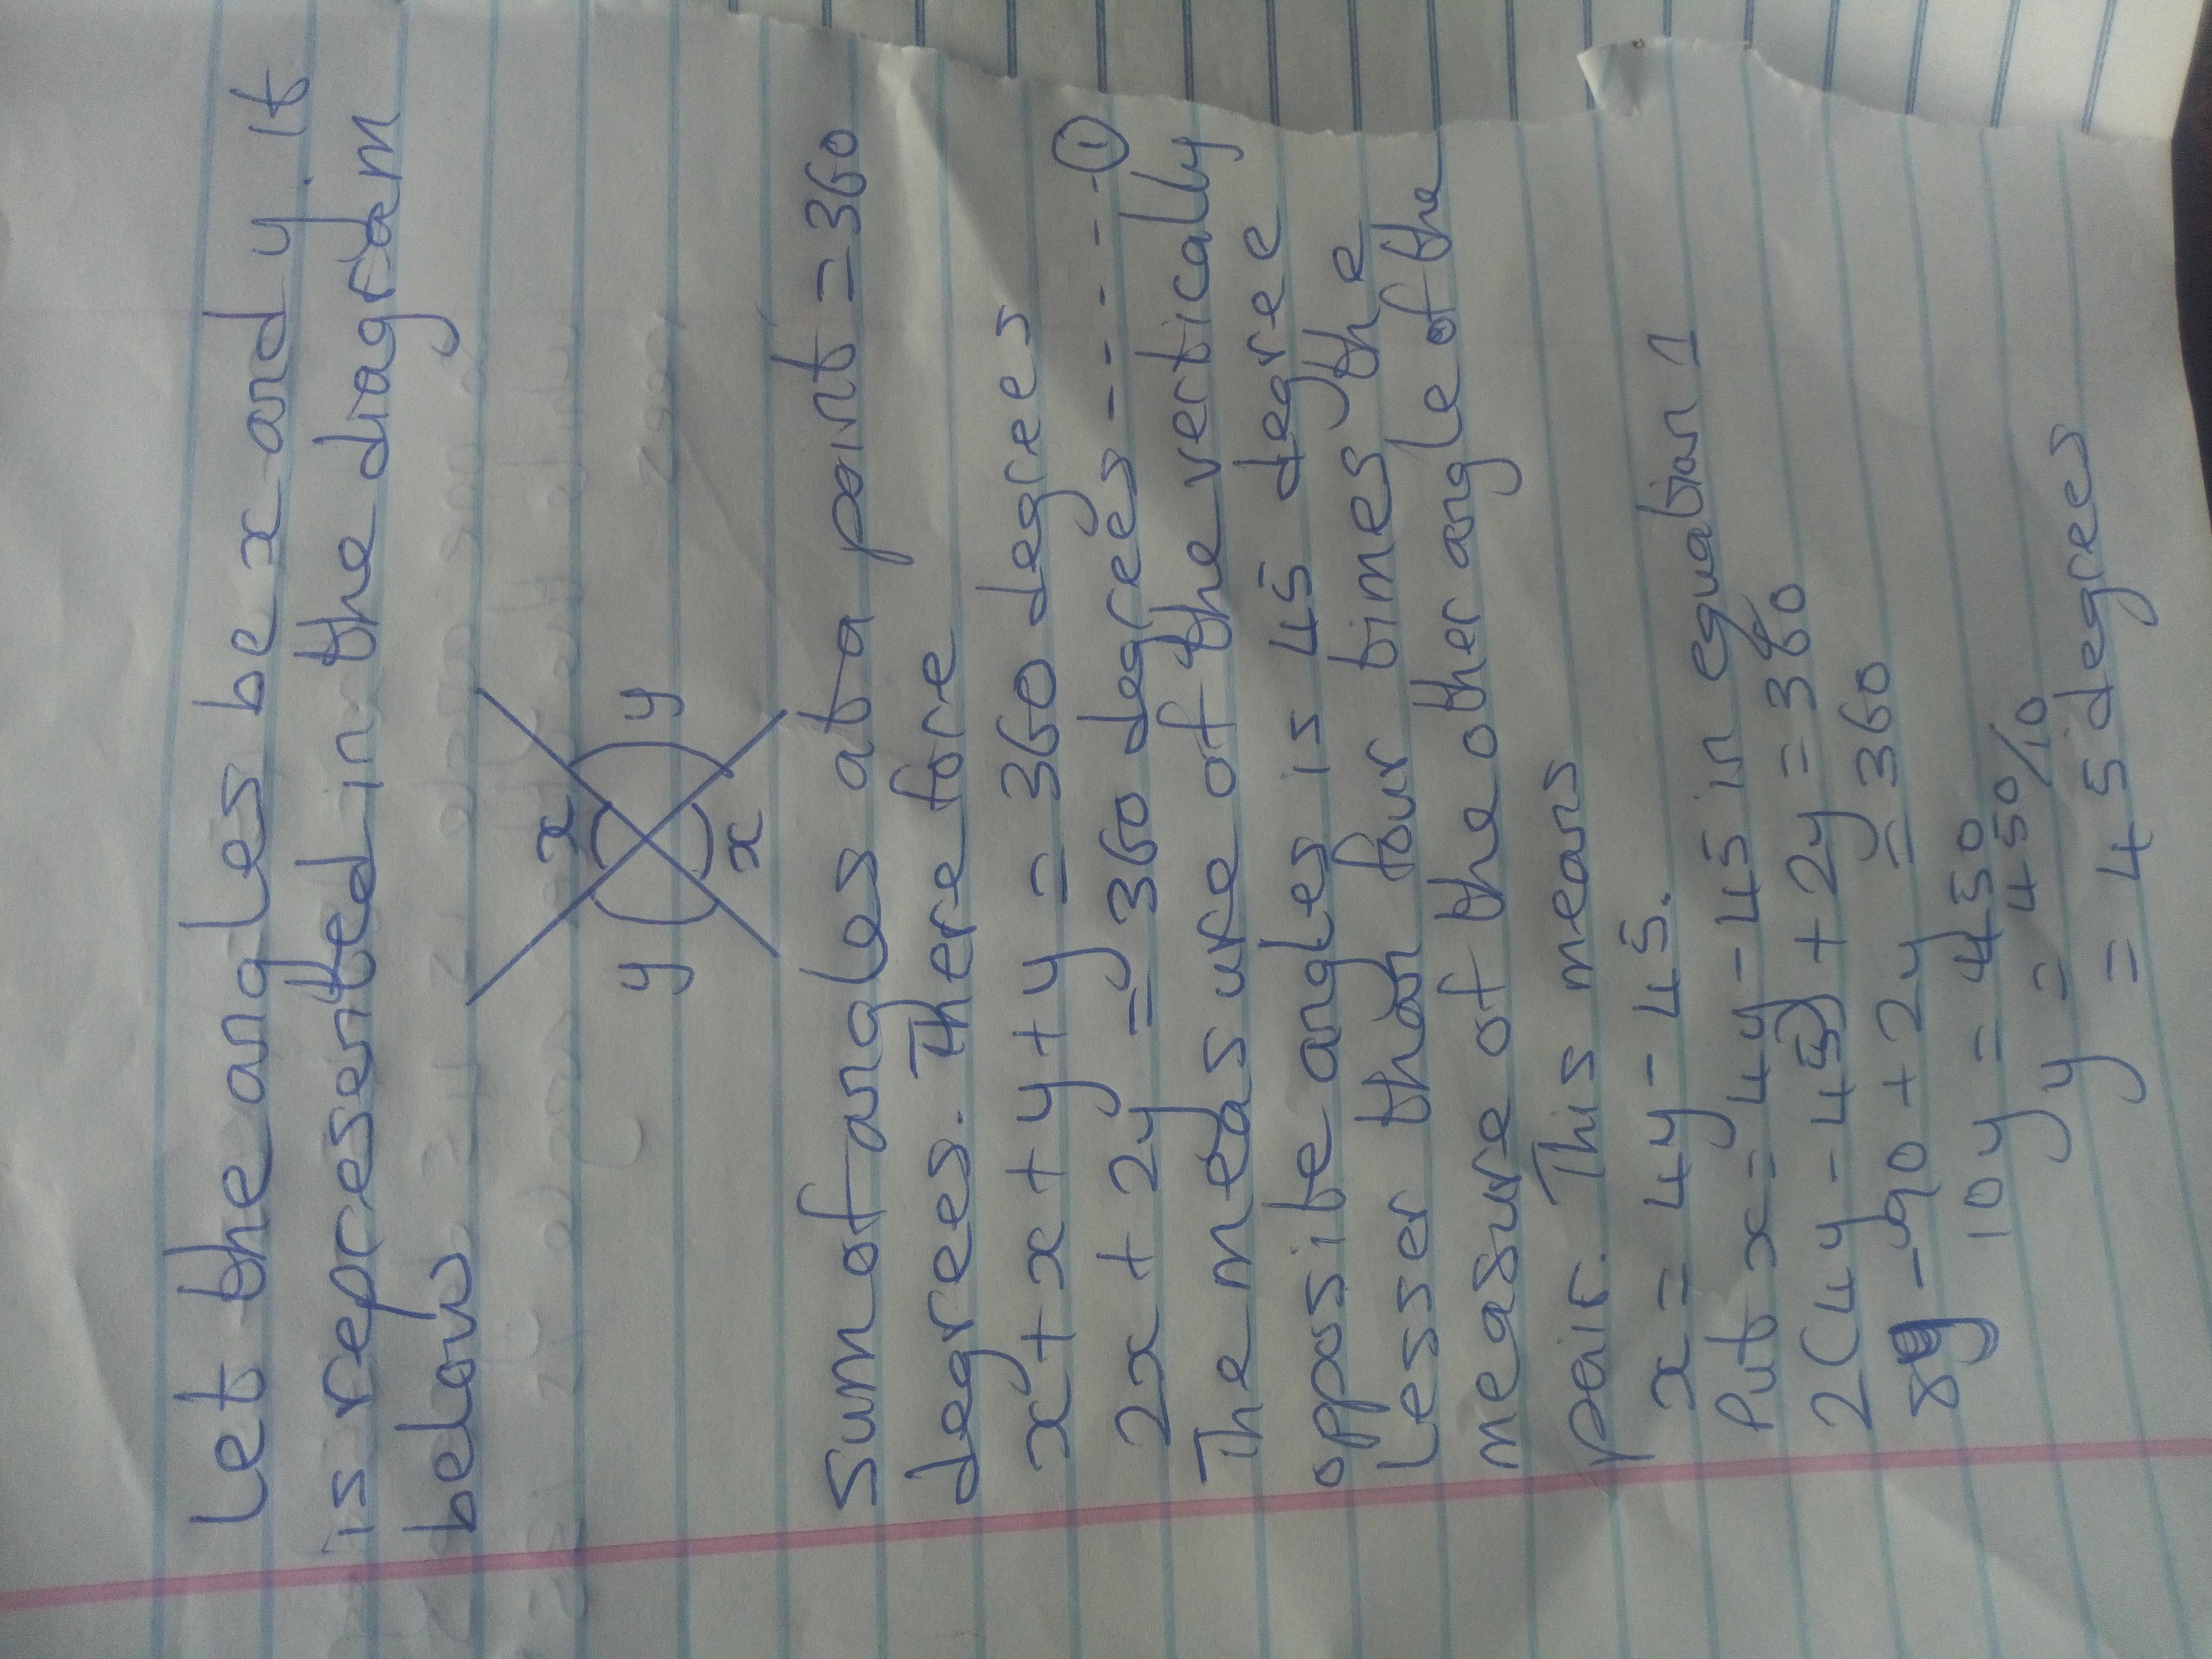 Let the angles be x and y. It
is represented in the diagram
below
x
y
y
x
Sum of angles at a point = 360
degrees. There fore
x + x + y + y = 360 degrees
2x + 2y = 360 degrees - - - - - ①
The measure of the vertically
opposite angles is 45 degree
Lesser than four times the
measure of the other angle of the
pair. This means
x = 4y - 45.
Put x = 4y - 45 in equation 1
2(4y - 45) + 2y = 360
8y - 90 + 2y = 360
10y = 450
y = 450/10
= 45 degrees